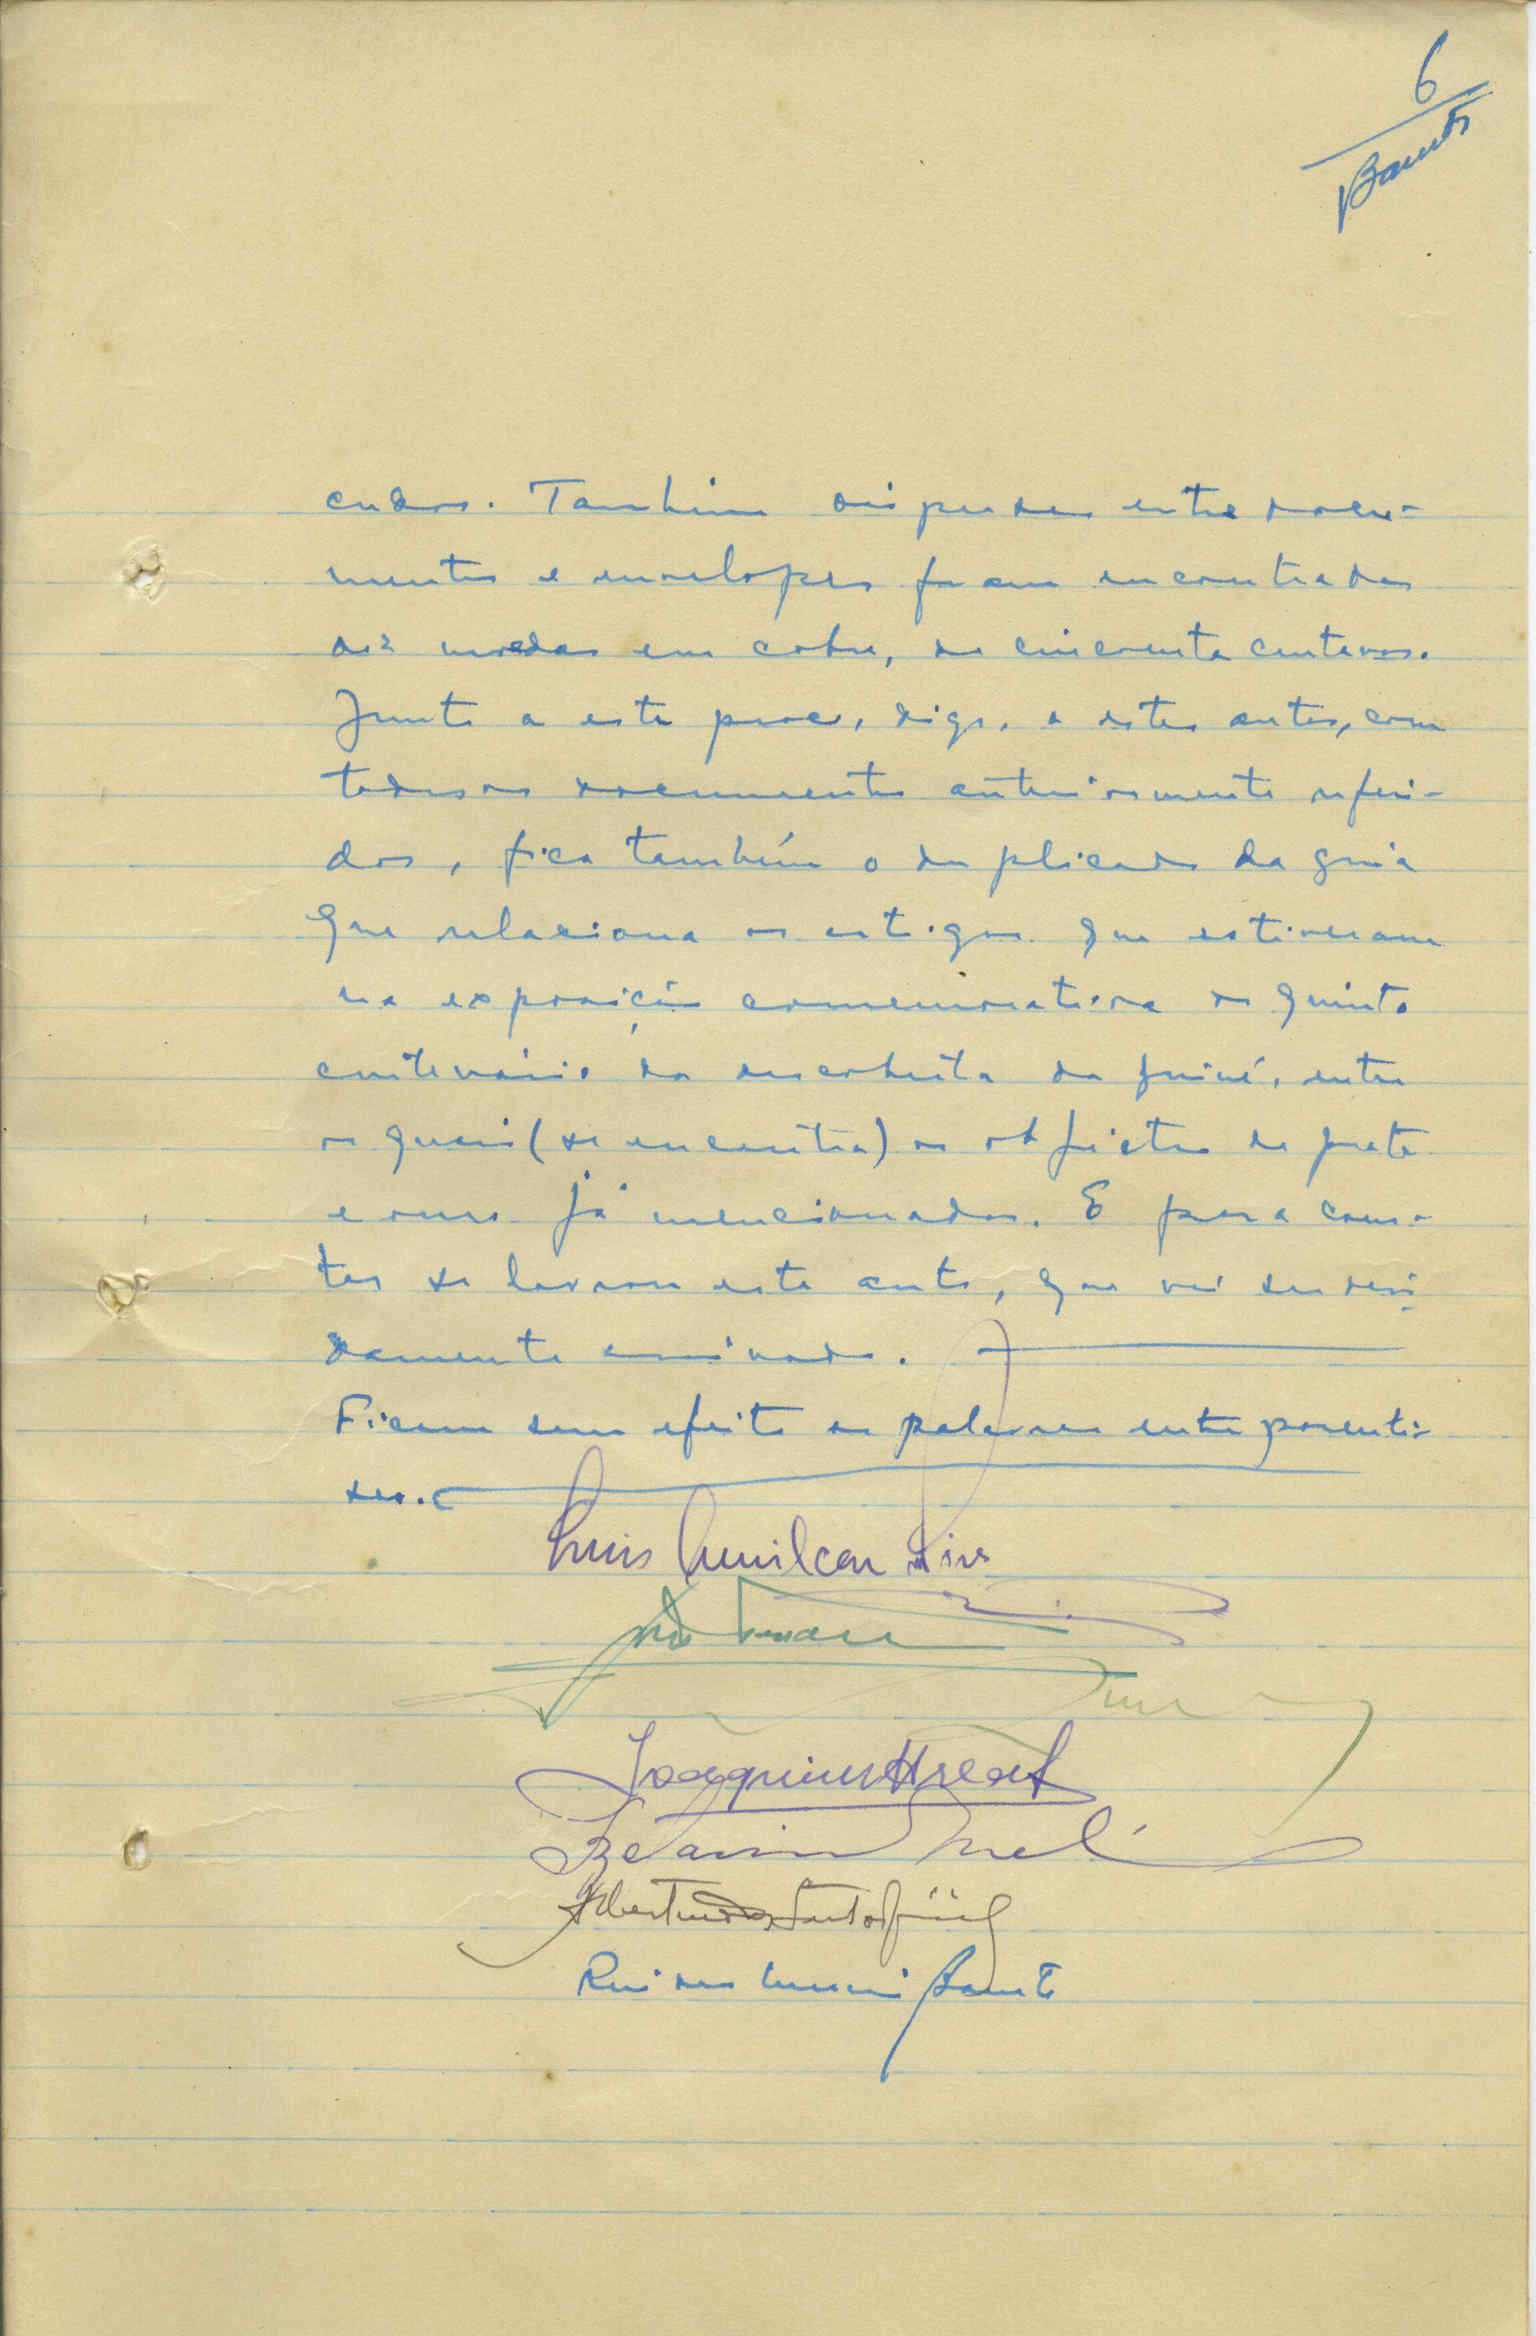 6
Barreto
cudos. Também dispersas entre docu-
mentos e envelopes foram encontradas
dez moedas em cobre, de cincoenta centavos.
Junto a este proc, digo, a estes autos, com
todos os documentos anteriormente referi-
dos, fica também o duplicado da guia
que relaciona os artigos que estiveram
na exposição comemorativa do quinto
centenário da descoberta da Guiné, entre
os quais (se encontra) os objectos de prata
e ouro já mencionados. E para cons-
tar se lavrou este auto, que vai ser devi-
damente assinado.
Ficam sem efeito as palavras entre parente-
ses.
Luis Amilcar
Joaquim
Alberto dos Santos
Rui